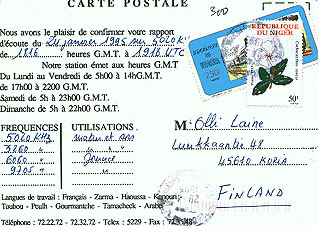 CARTE POSTALE
300
Nous avons le plaisir de confirmer votre rapport
d'écoute du 24 janvier 1995 sur 5020 K
de 1816 heures G.M.T. à 1918 UTC
Notre station émet aux heures G.M.T
Du Lundi au Vendredi de 5h00 à 14h G.M.T.
de 17h00 à 2200 G.M.T
Samedi de 5h à 23h00 G.M.T.
Dimanche de 5h à 22h00 G.M.T.
REPUBLIQUE DU NIGER
50F
FREQUENCES UTILISATIONS
5020 KHz matin et
3260 "
6060 "
9705 "
M. Olli Laine
45610 KORIA
FINLAND
Langues de travail : Français - Zarma - Haoussa - Kanouri
Toubou - Peulh - Gourmantche - Tamacheck - Arabe
Téléphone : 72.22.72 - 72.32.72 - Telex : 5229 - Fax